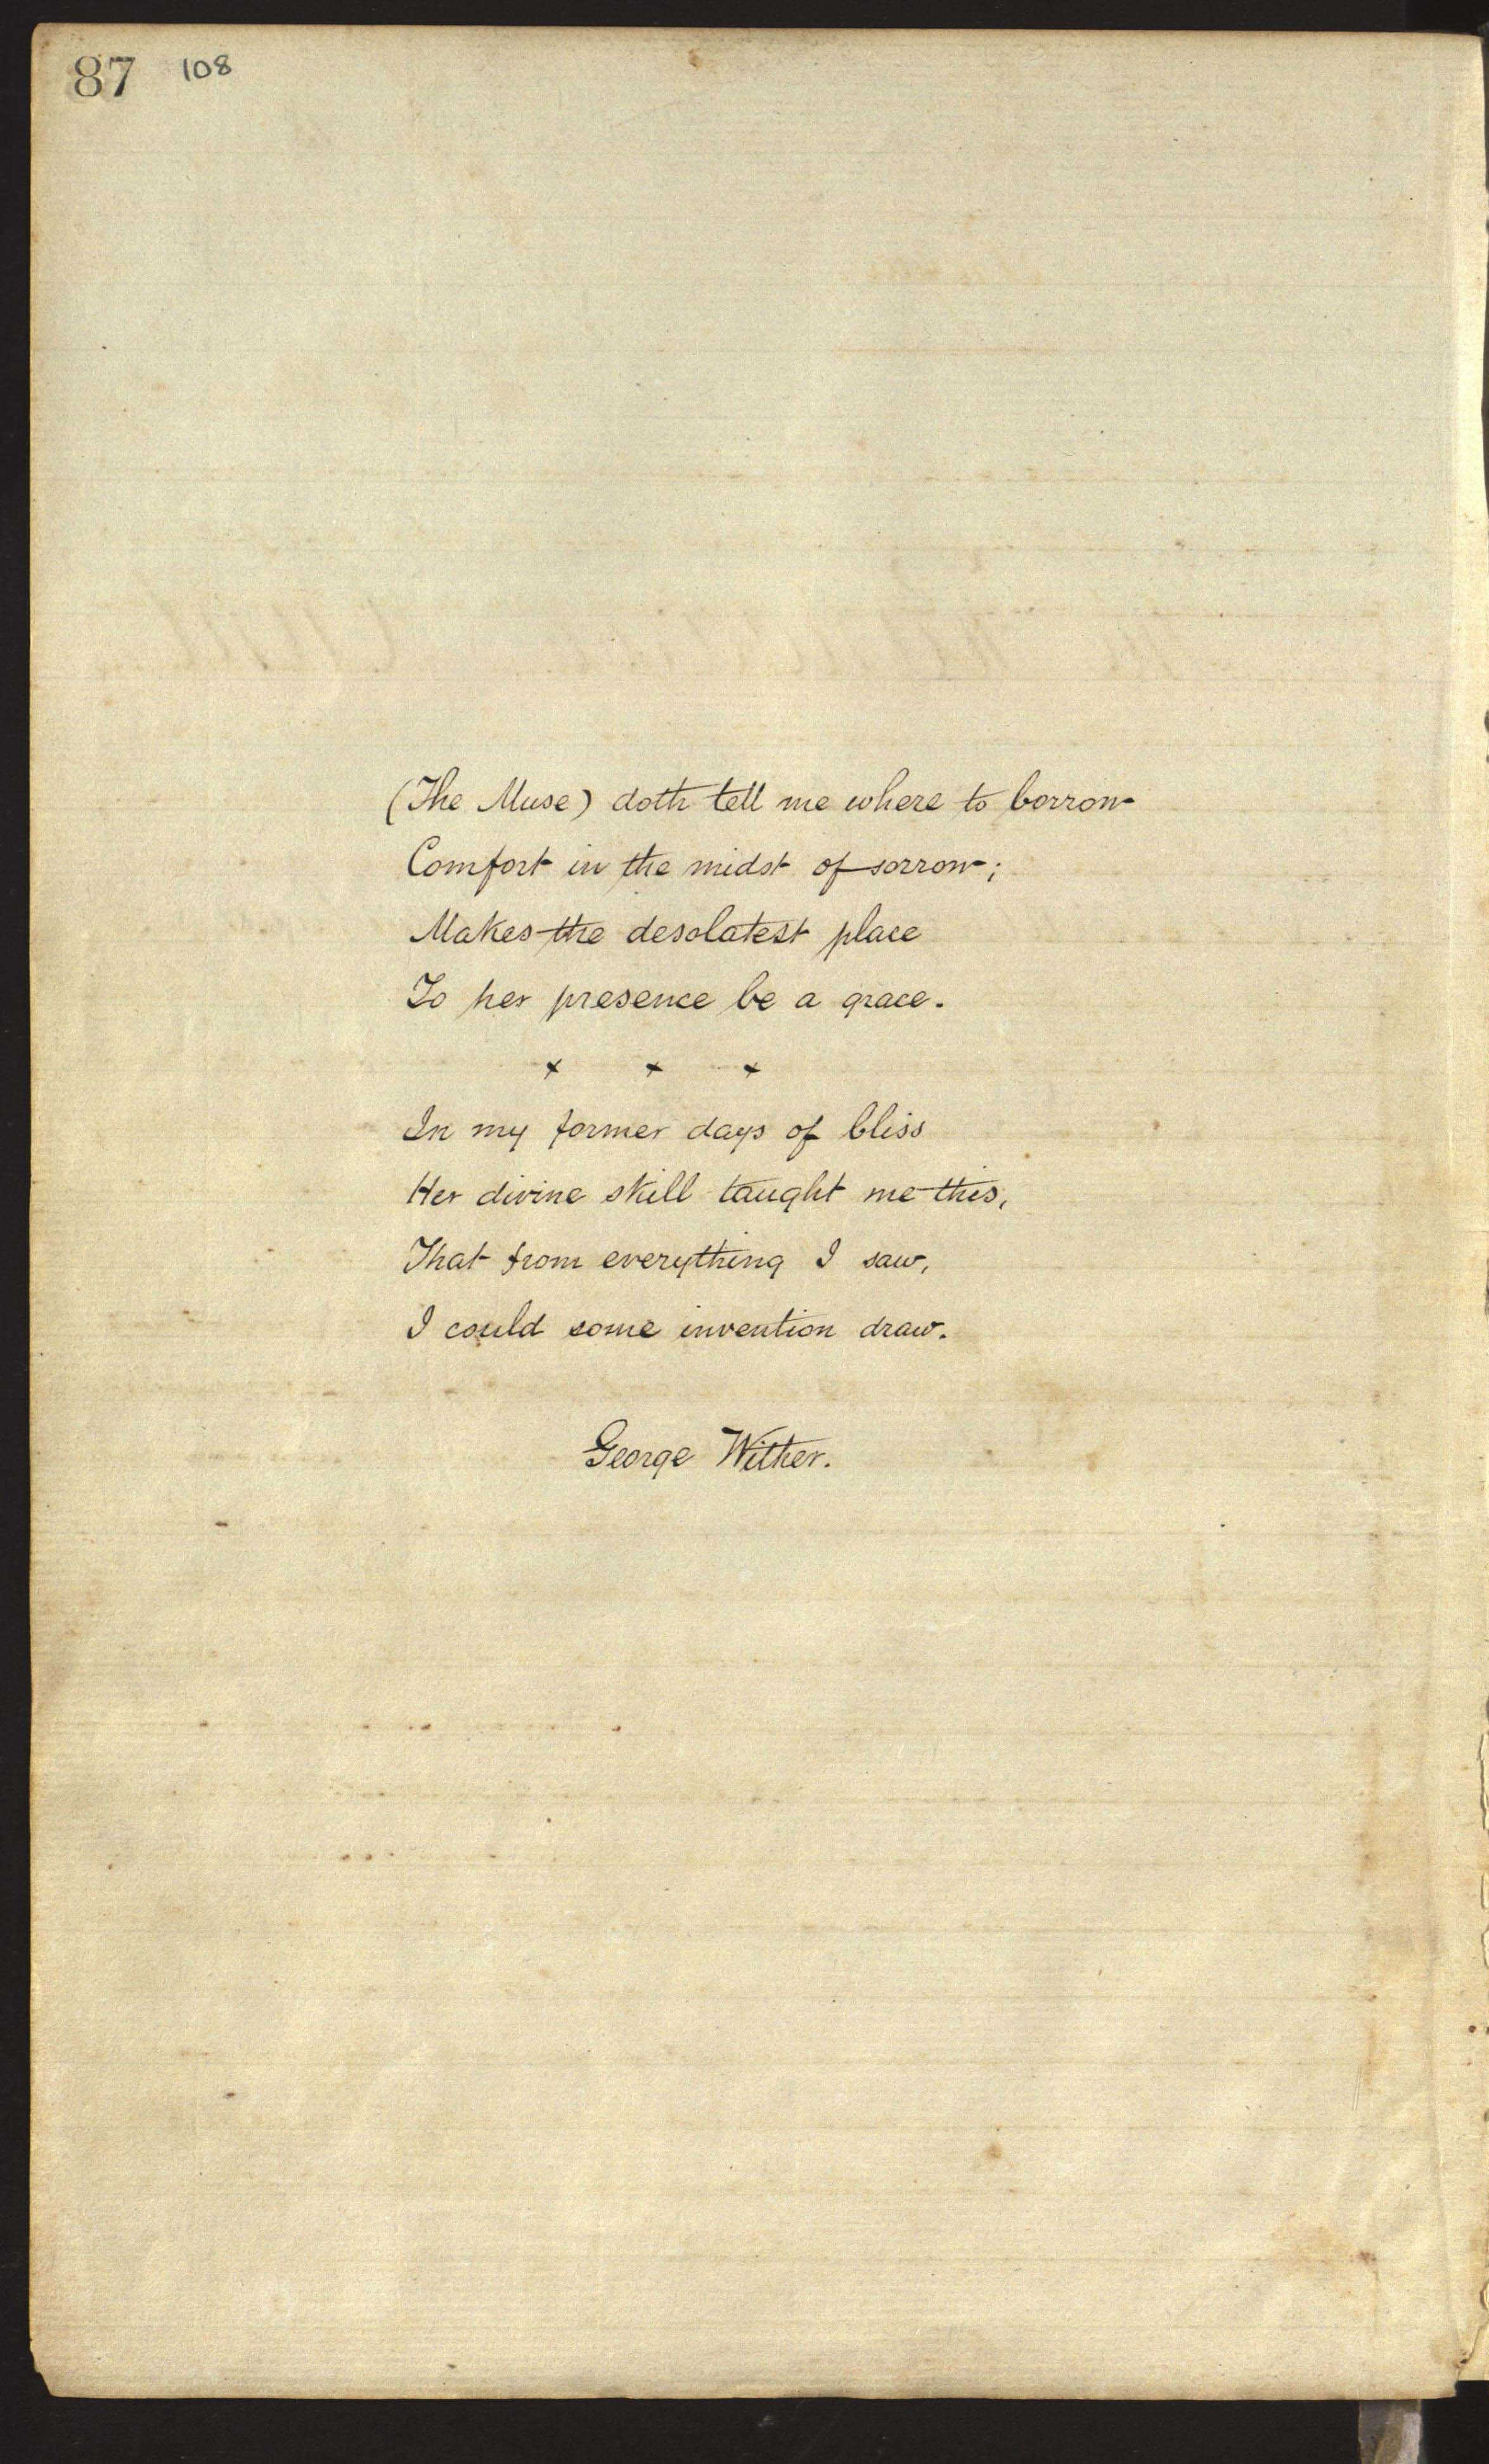 87 108
(The Muse) doth tell me where to borrow
Comfort in the midst of sorrow;
Makes the desolatest place
To her presence be a grace.
x x x
In my former days of bliss
Her divine skill taught me this,
That from everything I saw,
I could some invention draw.
George Wither.